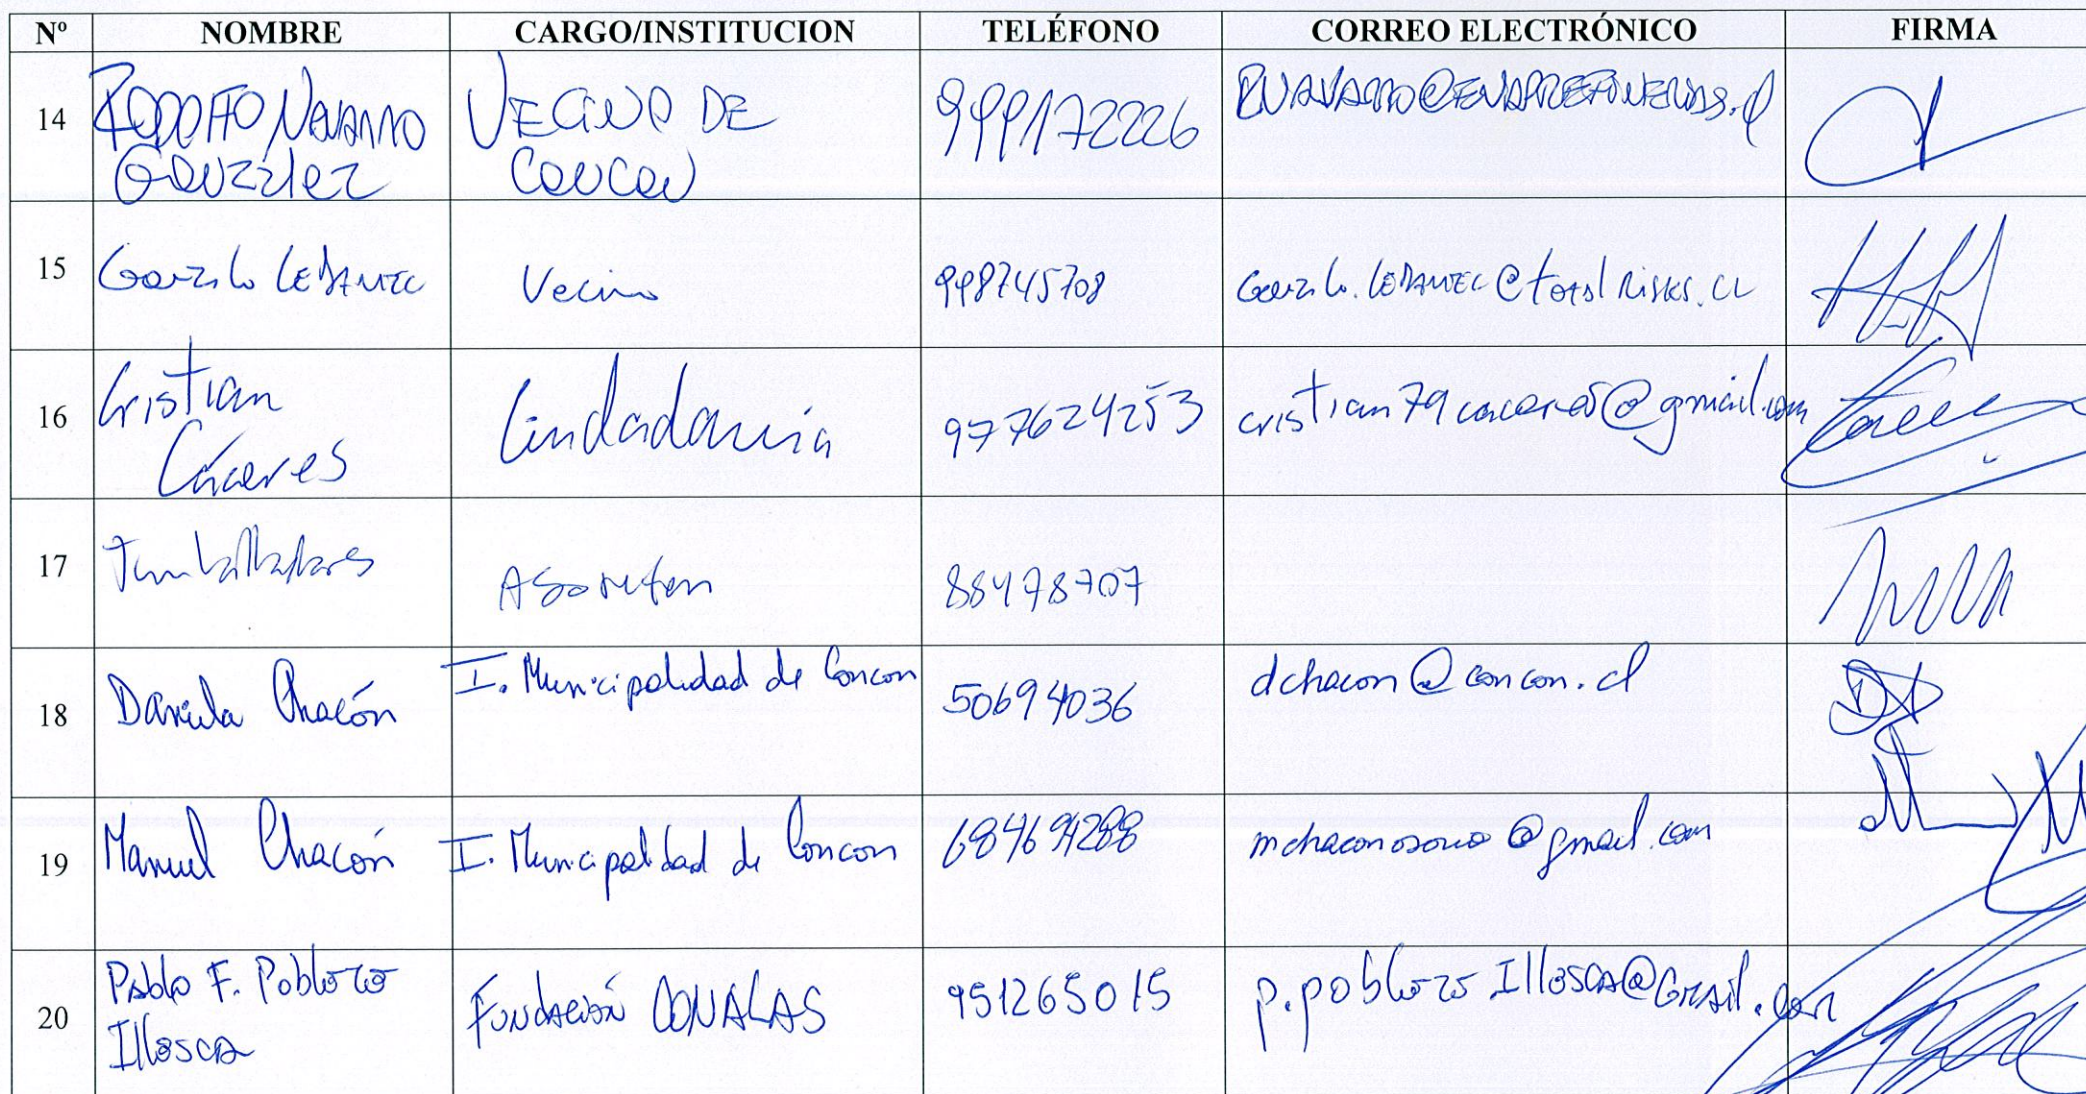 Nº NOMBRE CARGO/INSTITUCION TELÉFONO CORREO ELECTRÓNICO FIRMA
14 RODOLFO NAVARRO VECINO DE 999172226 RNAVARRO@ENAPREFINERIAS.cl
González CONCON
15 Gonzalo LEDANTEC Vecino 998745708 Gonzalo.LEDANTEC@totalRisks.CL
16 Cristian Ciudadania 977624253 cristian79caceres@gmail.com
Cáceres
17 88478707
18 Daniela Chacón I. Municipalidad de Concon 50694036 dchacon@concon.cl
19 Manuel Chacón I. Municipalidad de Concon 684694288 mchaconosorio@gmail.com
20 Pablo F. Poblete Fundación 951265015
Illesca